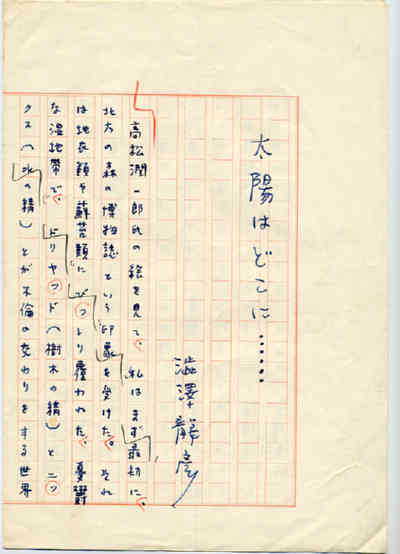 太陽はどこに……
澁澤龍彦
高松潤一郎氏の絵を見て、私はまず最初に、
北方の森の博物誌という印象を受けた。それ
は地衣類や蘚苔類にびっしり覆われた、憂鬱
な湿地帯で、ドリヤッド（樹木の精）とニッ
クス（水の精）とが不倫の交わりをする世界